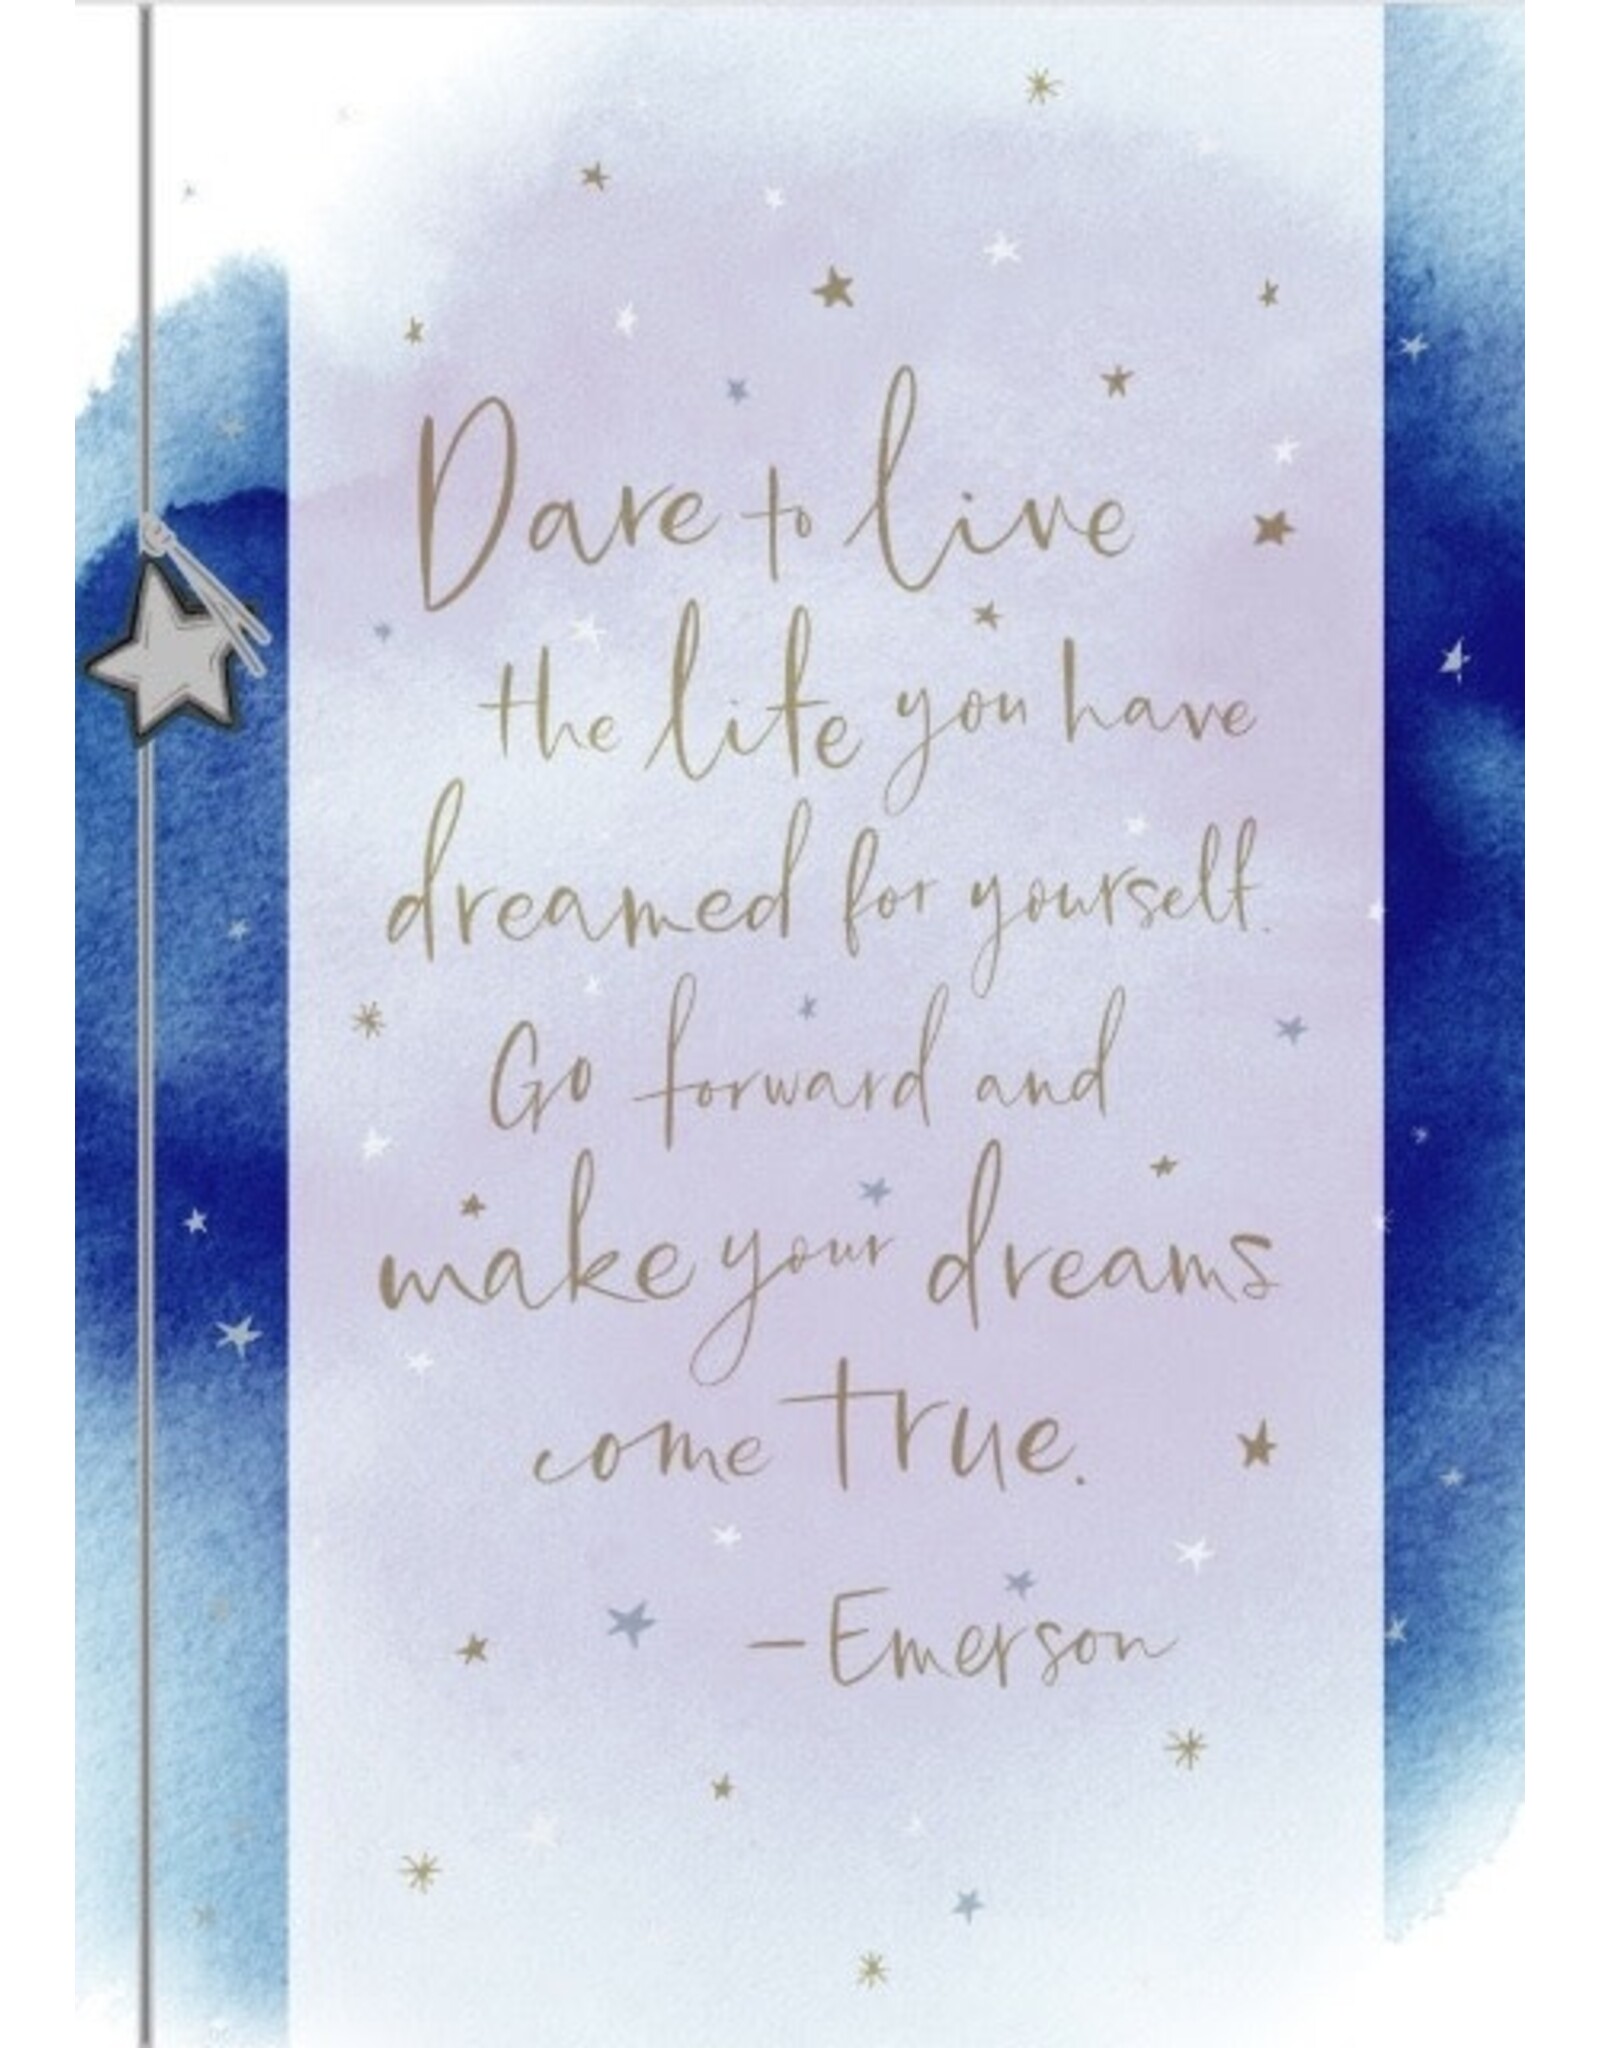 Dare to live
the life you have
dreamed for yourself.
Go forward and
make your dreams
come true.
–Emerson